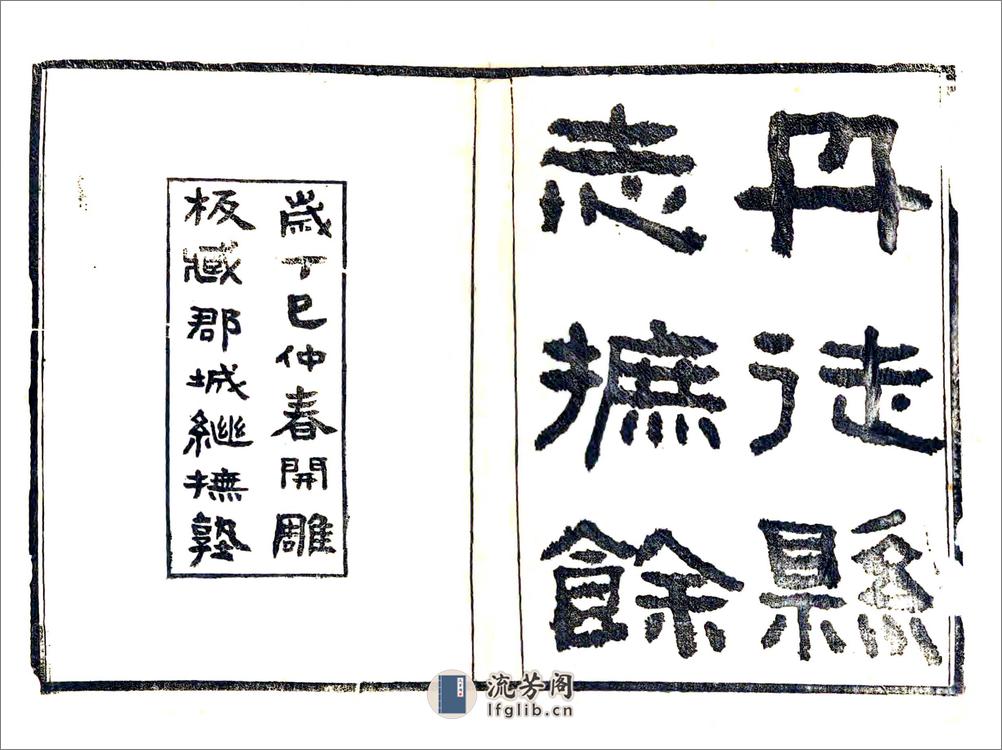 丹徒縣
志摭餘
歲丁巳仲春開雕
板藏郡城繼撫塾
流芳阁
lfglib.cn